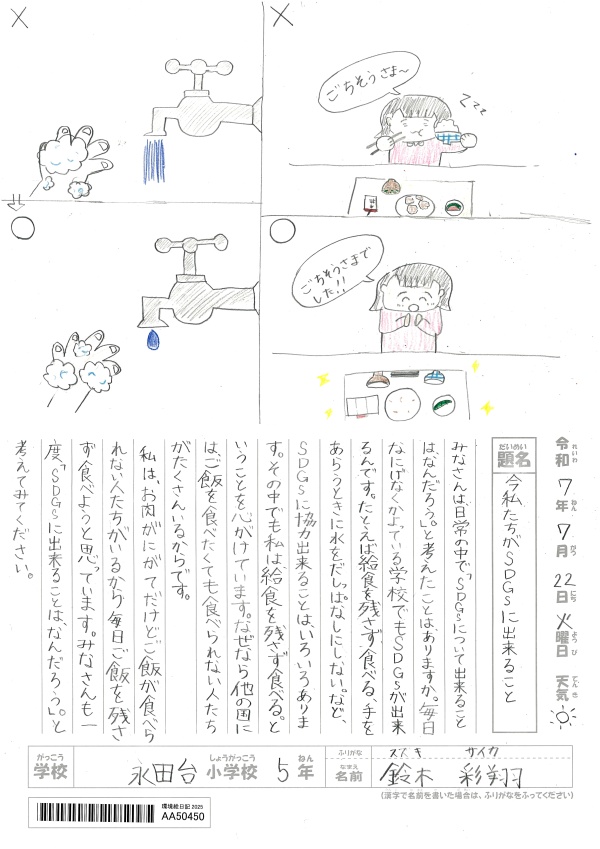 ×
×
ごちそうさま〜
○
○
ごちそうさまでした!!
令和れいわ7年ねん7月がつ22日にち火曜日ようび天気てんき
題名だいめい
今私たちがSDGsに出来ること
みなさんは日常の中で「SDGsについて出来ること
はなんだろう。」と考えたことはありますか。毎日
なにげなくかよっている学校でもSDGsが出来
るんです。たとえば給食を残さず食べる、手を
あらうときに水をだしっぱなしにしない。など、
SDGsに協力出来ることは、いろいろありま
す。その中でも私は給食を残さず食べる。と
いうことを心がけています。なぜなら他の国に
は、ご飯を食べたくても食べられない人たち
がたくさんいるからです。
私は、お肉がにがてだけどご飯が食べら
れない人たちがいるから毎日ご飯を残さ
ず食べようと思っています。みなさんも一
度「SDGsに出来ることは、なんだろう。」と
考えてみてください。
学校がっこう 永田台小学校しょうがっこう5年ねん
ふりがな スズキ サイカ
名前なまえ 鈴木 彩翔
(漢字で名前を書いた場合は、ふりがなをふってください)
環境絵日記 2025
AA50450